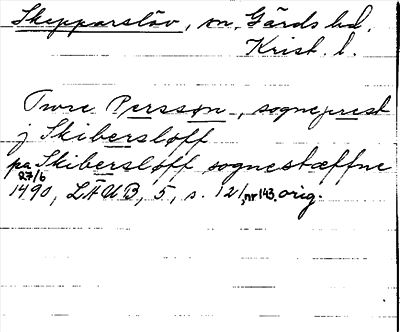 Skepparslöv, sn, Gärds hd.
Krist. l.
Twre Persson, sogneprest
j Skibersløff
pa Skibersløff sognestæffne
27/6
1490, LÄUB, 5, s. 121, nr 143. orig.